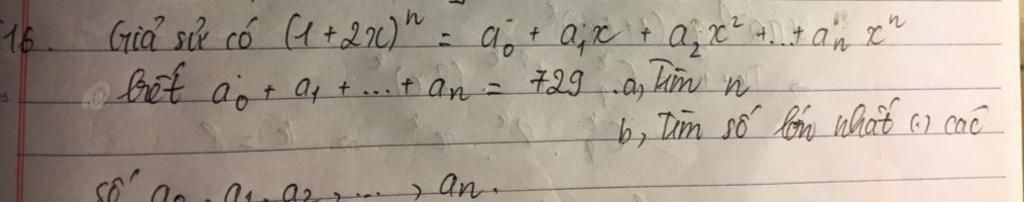 16. Giả sử có (1+2x)ⁿ = a₀ + a₁x + a₂x² + ... + aₙxⁿ
biết a₀ + a₁ + ... + aₙ = 729 . a, Tìm n
b, Tìm số lớn nhất (.) các
số a₀, a₁, a₂, ..., aₙ.